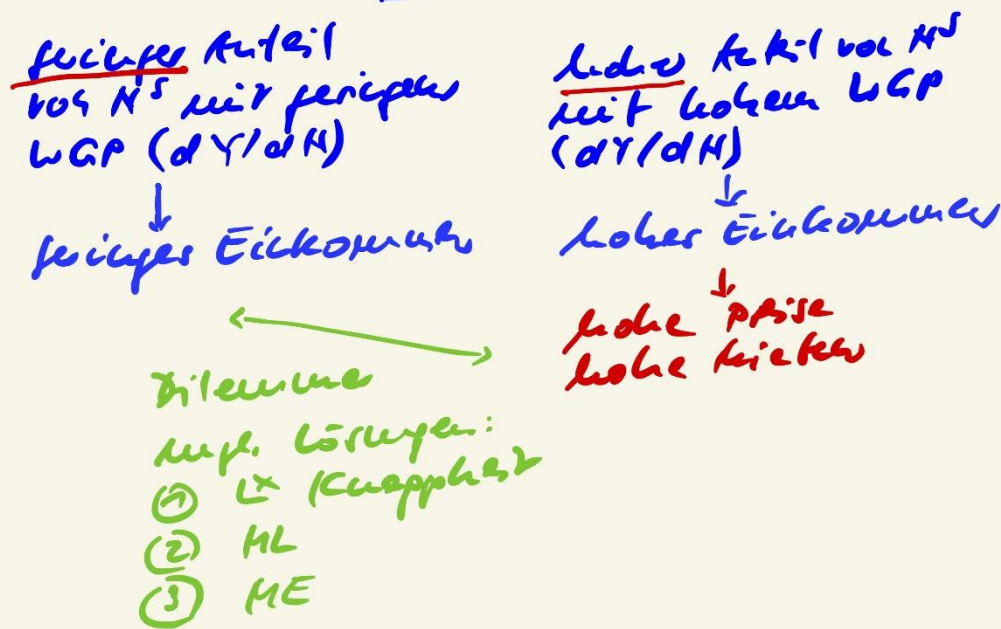 geringer Anteil
von N^S mit geringem
WGP (dY/dN)
↓
geringes Einkommen
hoher Anteil von N^S
mit hohem WGP
(dY/dN)
↓
hohes Einkommen
↓
hohe Preise
hohe Mieten
Dilemma
mögl. Lösungen:
① L* (Knappheit
② ML
③ ME